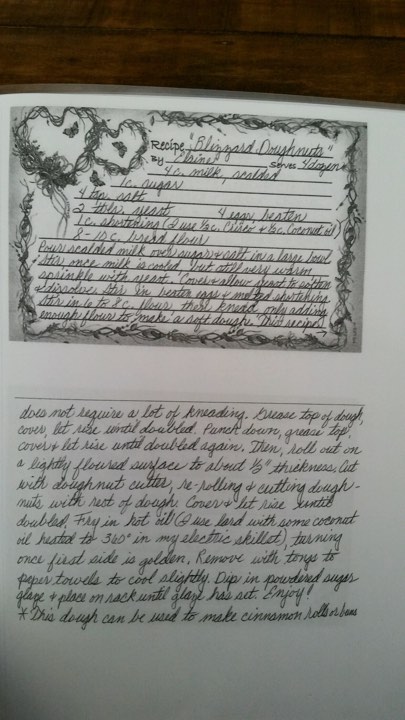 Recipe "Blizzard Doughnuts"
By Elaine Serves 4 dozen
4 c. milk, scalded
1 c. sugar
4 tsp. salt
2 tbls. yeast 4 eggs beaten
1 c. shortening (I use ½ c. Crisco & ½ c. Coconut oil)
8 - c. bread flour
Pour scalded milk over sugar & salt in a large bowl
Stir once milk is cooled but still very warm
sprinkle with yeast. Cover & allow yeast to soften
& dissolve. Stir in beaten eggs & melted shortening
Stir in 6 to 8 c. flour then knead, only adding
enough flour to make a soft dough. This recipe
does not require a lot of kneading. Grease top of dough,
cover, let rise until doubled. Punch down, grease top,
cover & let rise until doubled again. Then, roll out on
a lightly floured surface to about ½" thickness. Cut
with doughnut cutter, re-rolling & cutting dough-
nuts with rest of dough. Cover & let rise until
doubled. Fry in hot oil (I use lard with some coconut
oil heated to 360° in my electric skillet), turning
once first side is golden. Remove with tongs to
paper towels to cool slightly. Dip in powdered sugar
glaze & place on rack until glaze has set. Enjoy!
* This dough can be used to make cinnamon rolls or buns